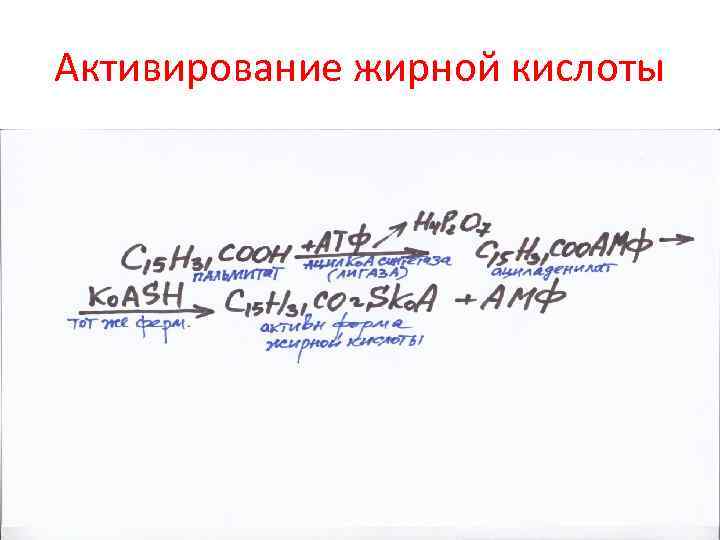 Активирование жирной кислоты
C15H31COOH +АТФ → H4P2O7 C15H31COOАМФ →
пальмитат ацилКоА синтетаза (лигаза) ациладенилат
KoASH → C15H31CO~SKoA + АМФ
тот же ферм. активн форма
жирной кислоты